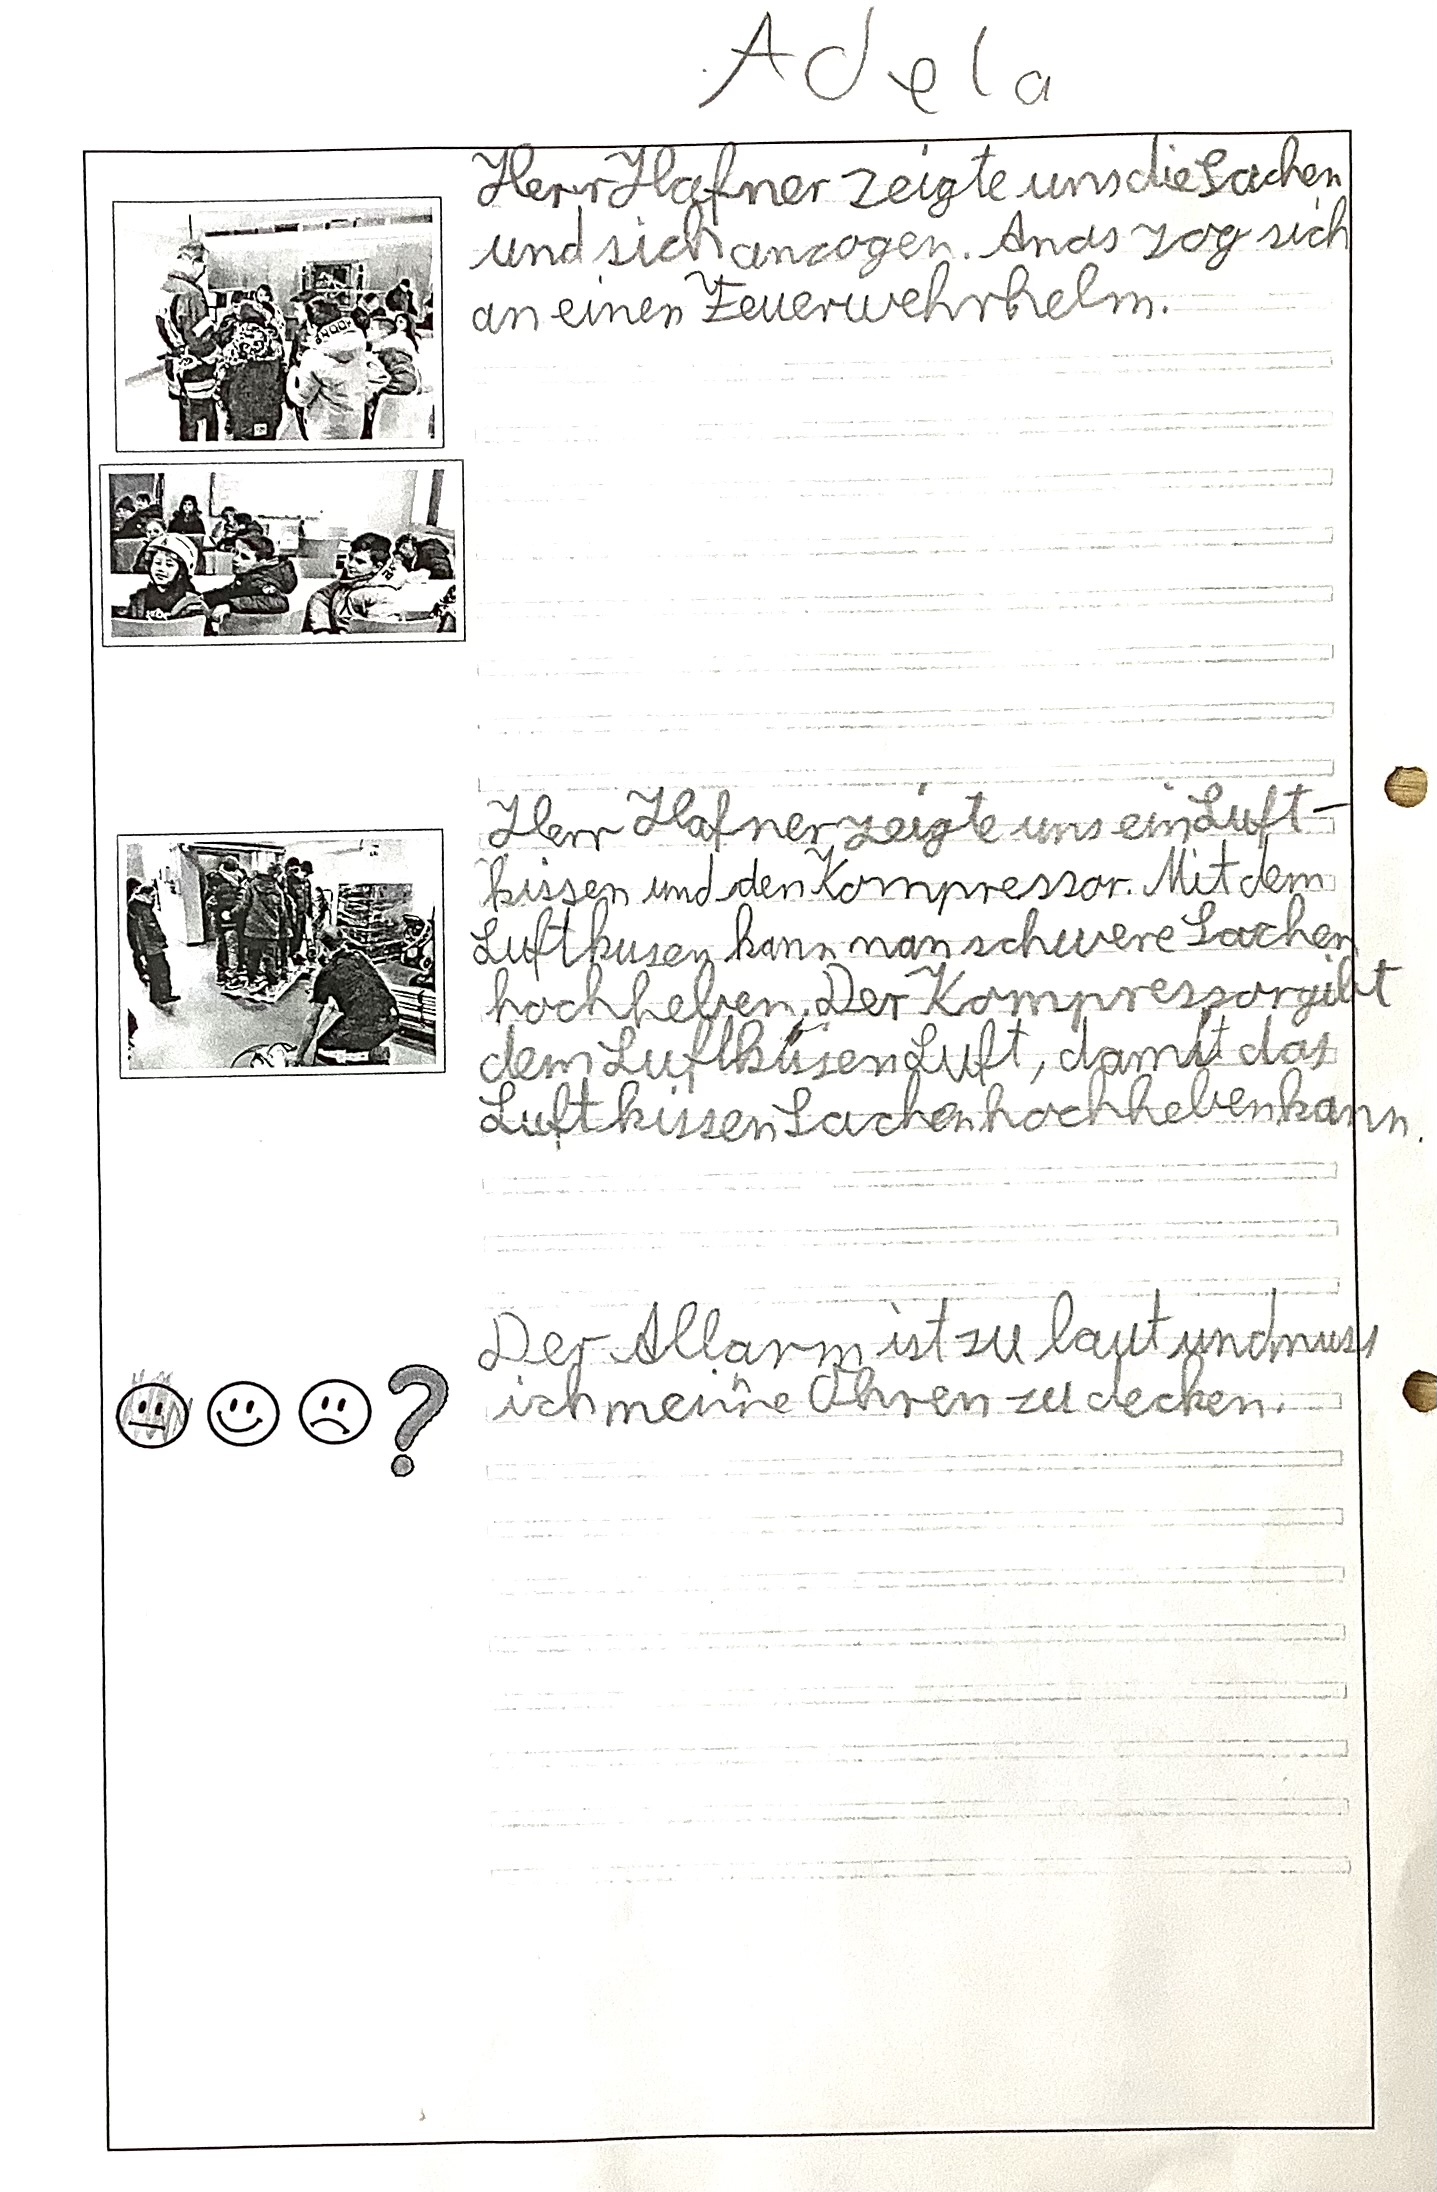 Adela
Herr Hafner zeigte uns die Sachen
und sich anzogen. Anas zog sich
an einen Feuerwehrhelm.
Herr Hafner zeigte uns ein Luft-
kissen und den Kompressor. Mit dem
Luftkusen kann man schwere Sachen
hochheben. Der Kompressor gibt
dem Luftkissen Luft, damit das
Luftkissen Sachen hochheben kann.
Der Allarm ist zu laut und muss
ich meine Ohren zu decken.
?